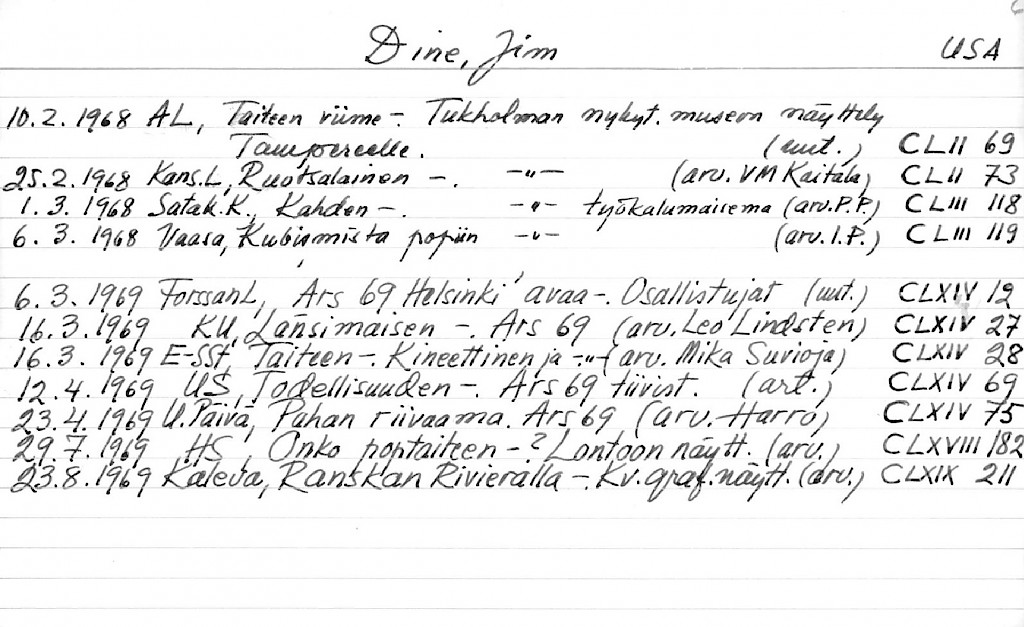 Dine, Jim USA
10.2.1968 AL, Taiteen viime -. Tukholman nykyt. museon näyttely
Tampereelle. (uut.) CLII 69
25.2.1968 Kans.L, Ruotsalainen -. -"- (arv. VM Kaitala) CLII 73
1.3.1968 Satak.K., Kahden -. -"- työkalumaisema (arv. P.P.) CLIII 118
6.3.1968 Vaasa, Kubismista popiin -"- (arv. I.P.) CLIII 119
6.3.1969 ForssanL, Ars 69 Helsinki avaa -. Osallistujat (uut.) CLXIV 12
16.3.1969 KU, Länsimaisen -. Ars 69 (arv. Leo Lindsten) CLXIV 27
16.3.1969 E-SSt, Taiteen -. Kineettinen ja -"- (arv. Mika Suvioja) CLXIV 28
12.4.1969 US, Todellisuuden -. Ars 69 tiivist. (art.) CLXIV 69
23.4.1969 U.Päivä, Pahan riivaama. Ars 69 (arv. Harro) CLXIV 75
29.7.1969 HS, Onko poptaiteen -? Lontoon näytt. (arv.) CLXVIII 182
23.8.1969 Kaleva, Ranskan Rivieralla -. Kv. graf. näytt. (arv.) CLXIX 211